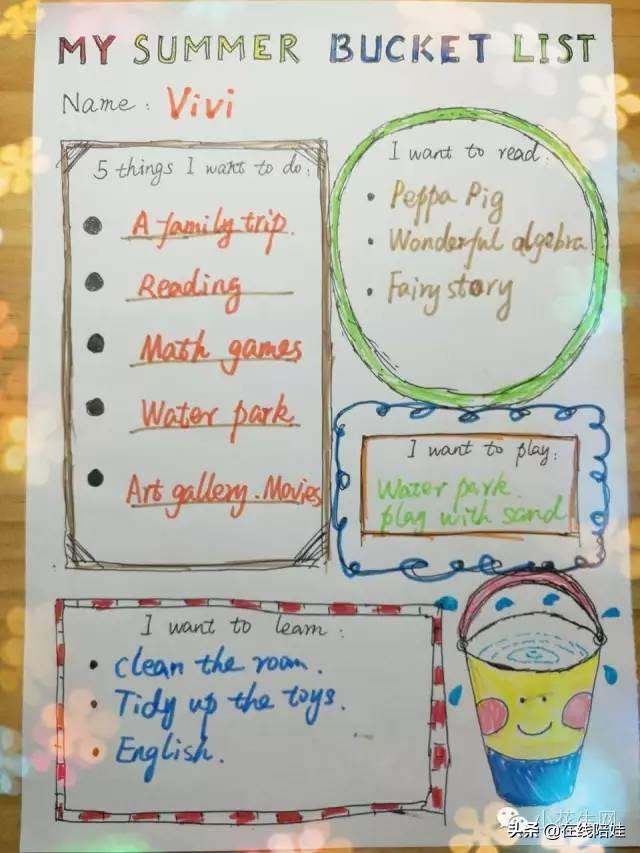 MY SUMMER BUCKET LIST
Name: Vivi
5 things I want to do:
A family trip.
Reading
Math games
Water park
Art gallery. Movies
I want to read:
Peppa Pig
Wonderful algebra
Fairy story
I want to play:
Water park.
play with sand
I want to learn:
clean the room.
Tidy up the toys.
English.
小花生网
头条 @在线陪娃